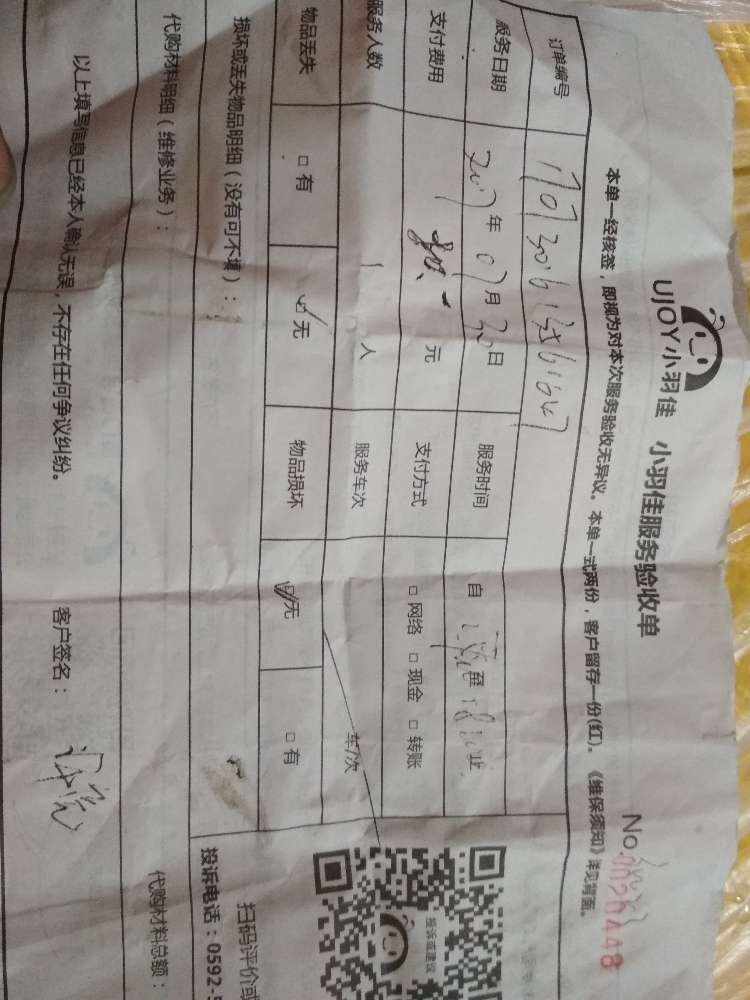 UJOY小羽佳 小羽佳服务验收单
No.
本单一经核签，即视为对本次服务验收无异议。本单一式两份，客户留存一份(红)。《维保须知》详见背面。
订单编号
服务日期 2017年07月30日 服务时间 自 至 止
支付费用 元 支付方式 □网络 □现金 □转账
服务人数 1人 服务车次 车/次
物品丢失 □有 ☑无 物品损坏 ☑无 □有
损坏或丢失物品明细（没有可不填）：
代购材料明细（维修业务）： 代购材料总额：
以上填写信息已经本人确认无误，不存在任何争议纠纷。 客户签名：
投诉或建议
扫码评价或
投诉电话：0592-5